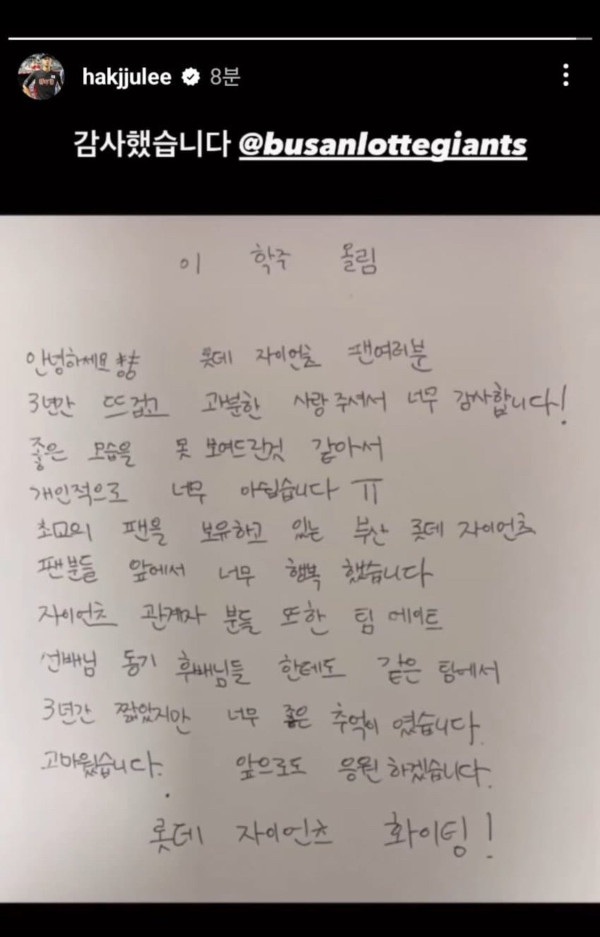 hakjjulee 8분
감사했습니다 @busanlottegiants
이 학주 올림
안녕하세요 롯데 자이언츠 팬여러분
3년간 뜨겁고 과분한 사랑 주셔서 너무 감사합니다!
좋은 모습을 못 보여드린것 같아서
개인적으로 너무 아쉽습니다 ㅠ
최고의 팬을 보유하고 있는 부산 롯데 자이언츠
팬분들 앞에서 너무 행복 했습니다
자이언츠 관계자 분들 또한 팀 메이트
선배님 동기 후배님들 한테도 같은 팀에서
3년간 짧았지만 너무 좋은 추억이 였습니다.
고마웠습니다. 앞으로도 응원 하겠습니다.
롯데 자이언츠 화이팅!